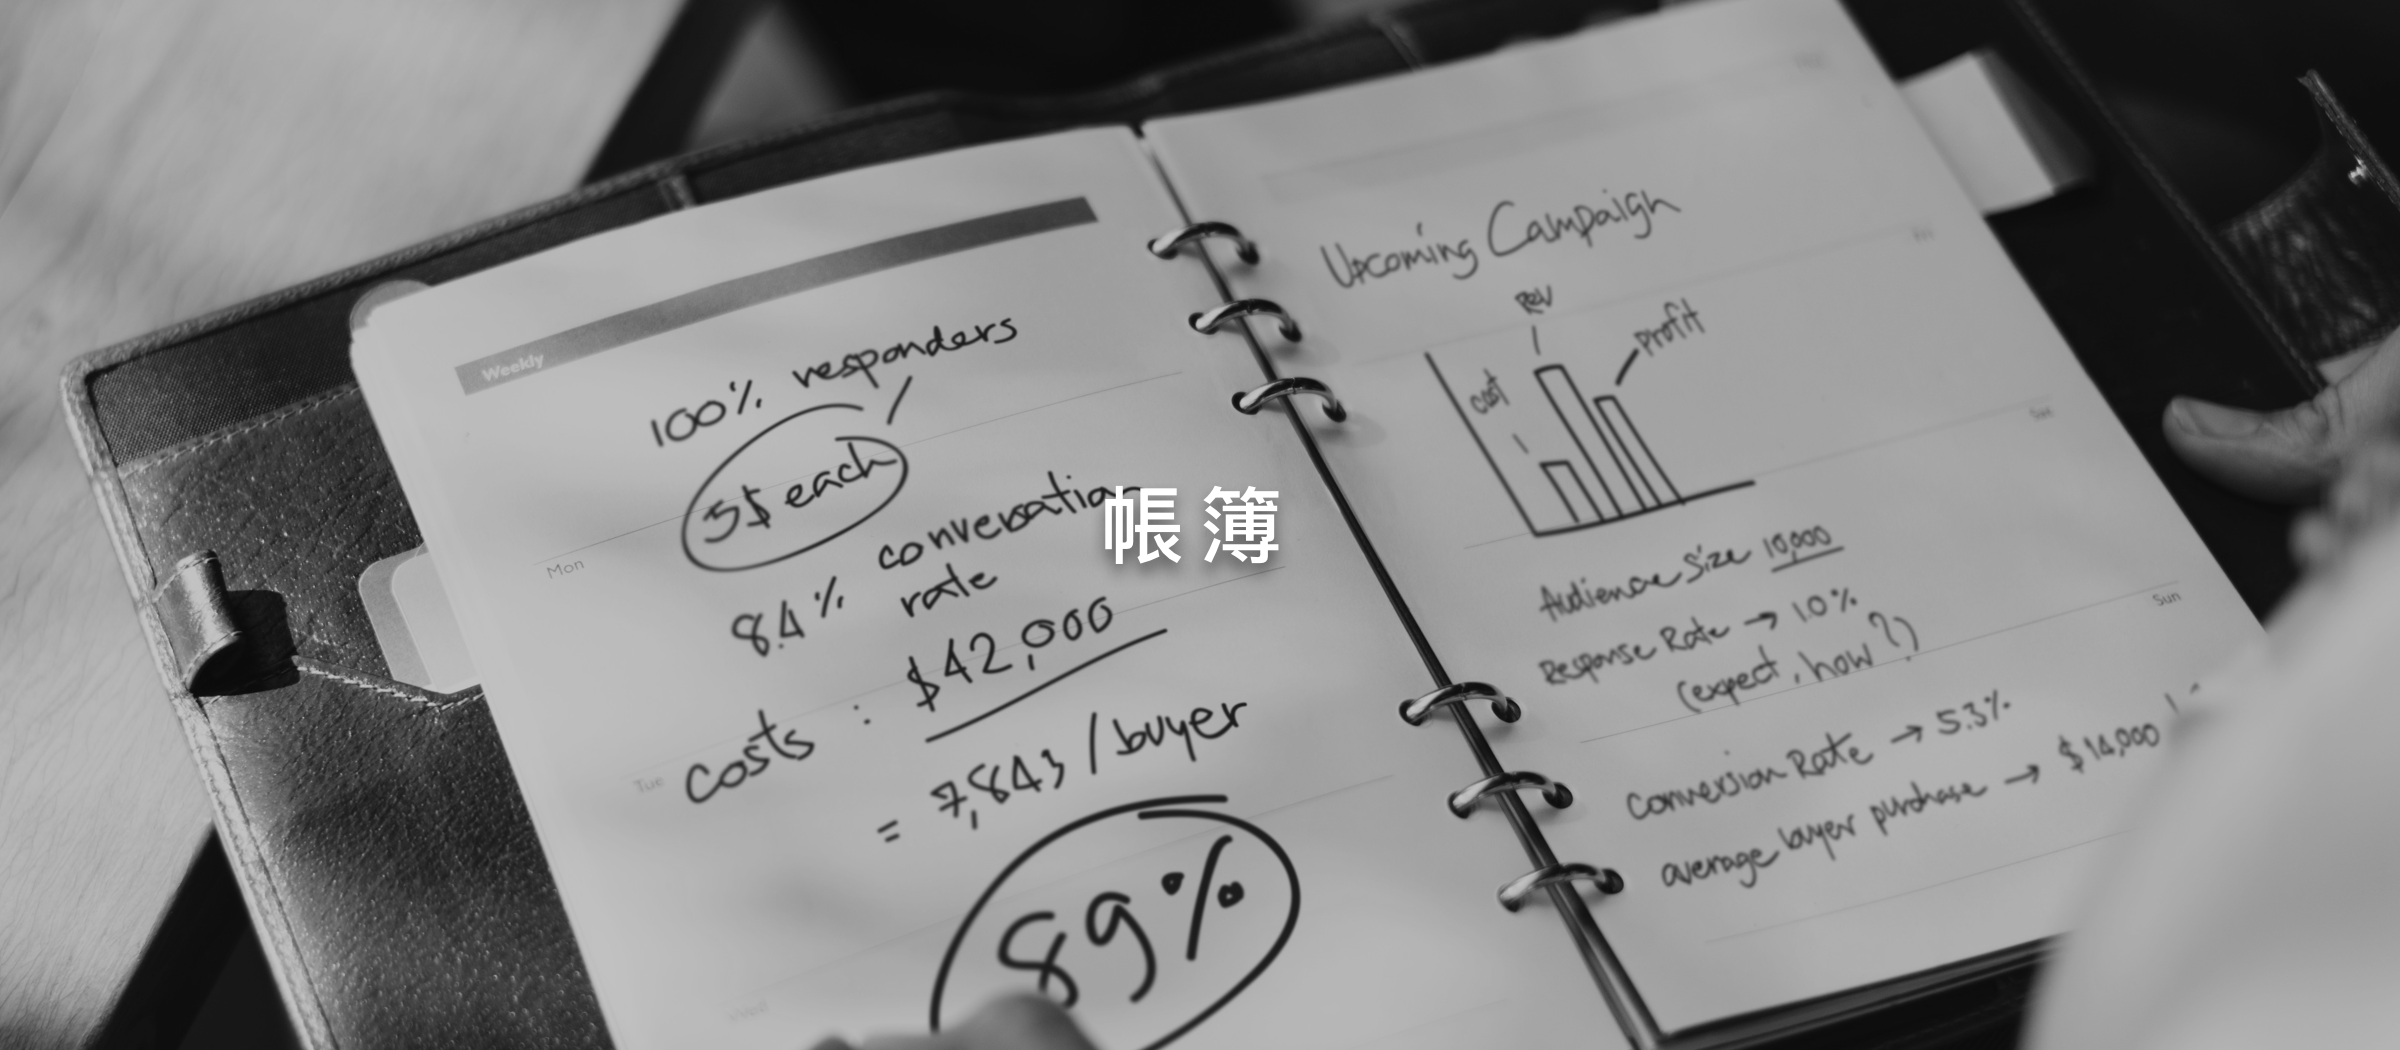 Weekly
100% responders
5$ each
Mon
8.4% conversation
rate
Tue
costs : $42,000
= 7,843 / buyer
89%
帳簿
Upcoming Campaign
Rev
cost
Profit
Sat
Audience Size 10,000
Sun
Response Rate → 1.0%
(expect, how?)
Conversion Rate → 5.3%
average buyer purchase → $14,000